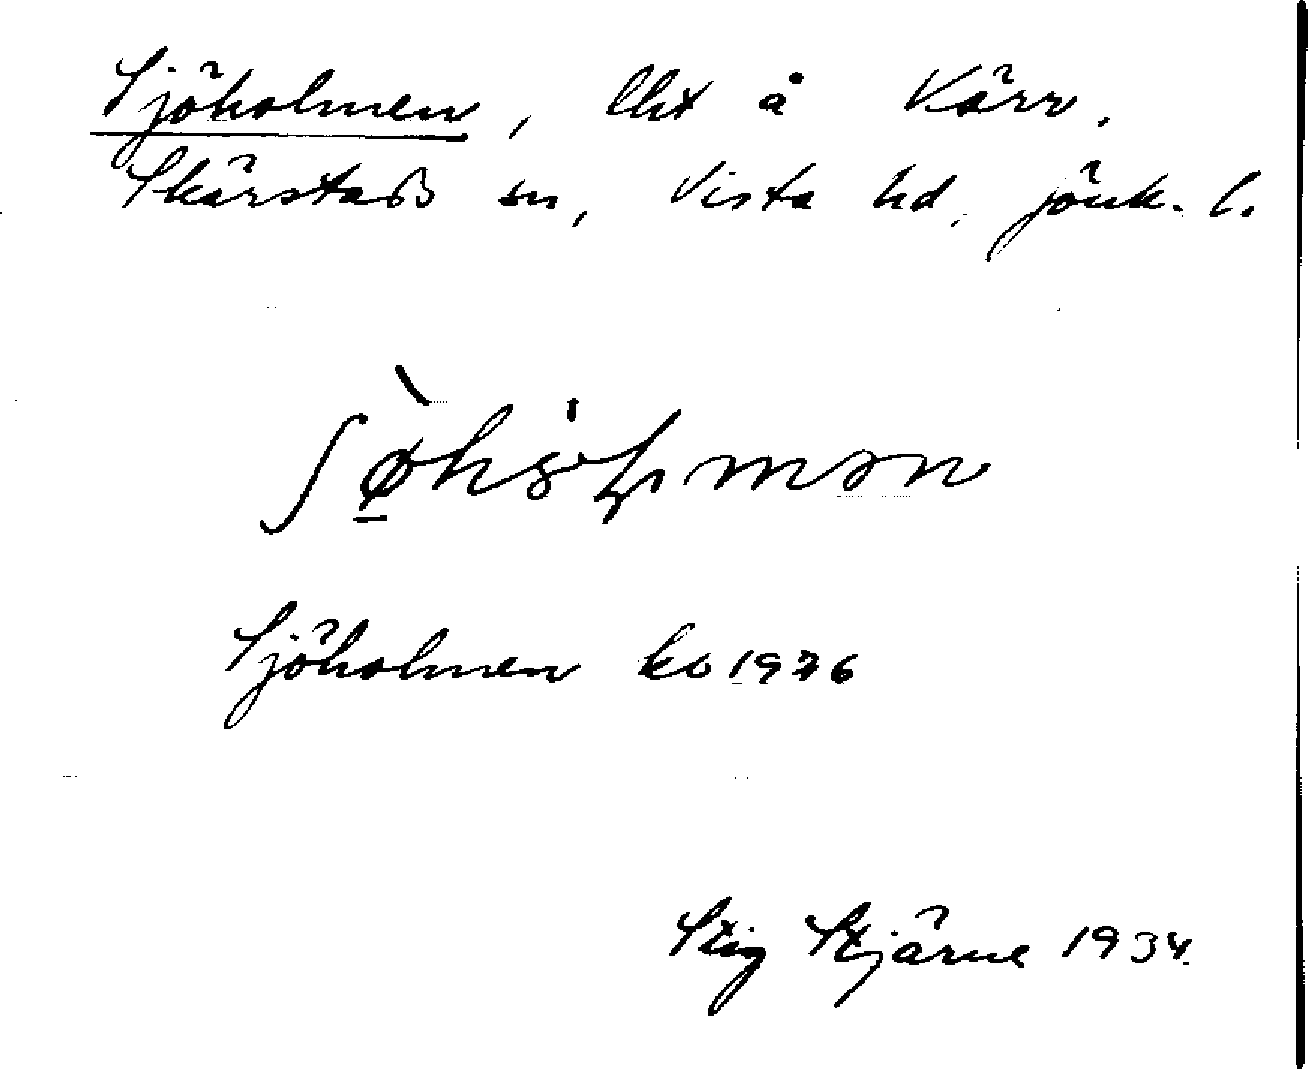 Sjöholmen, lht å Kärr,
Skärstads sn, Vista hd, Jönk. l.
Sjöholmen ko 1926
Stig Stjärne 1934